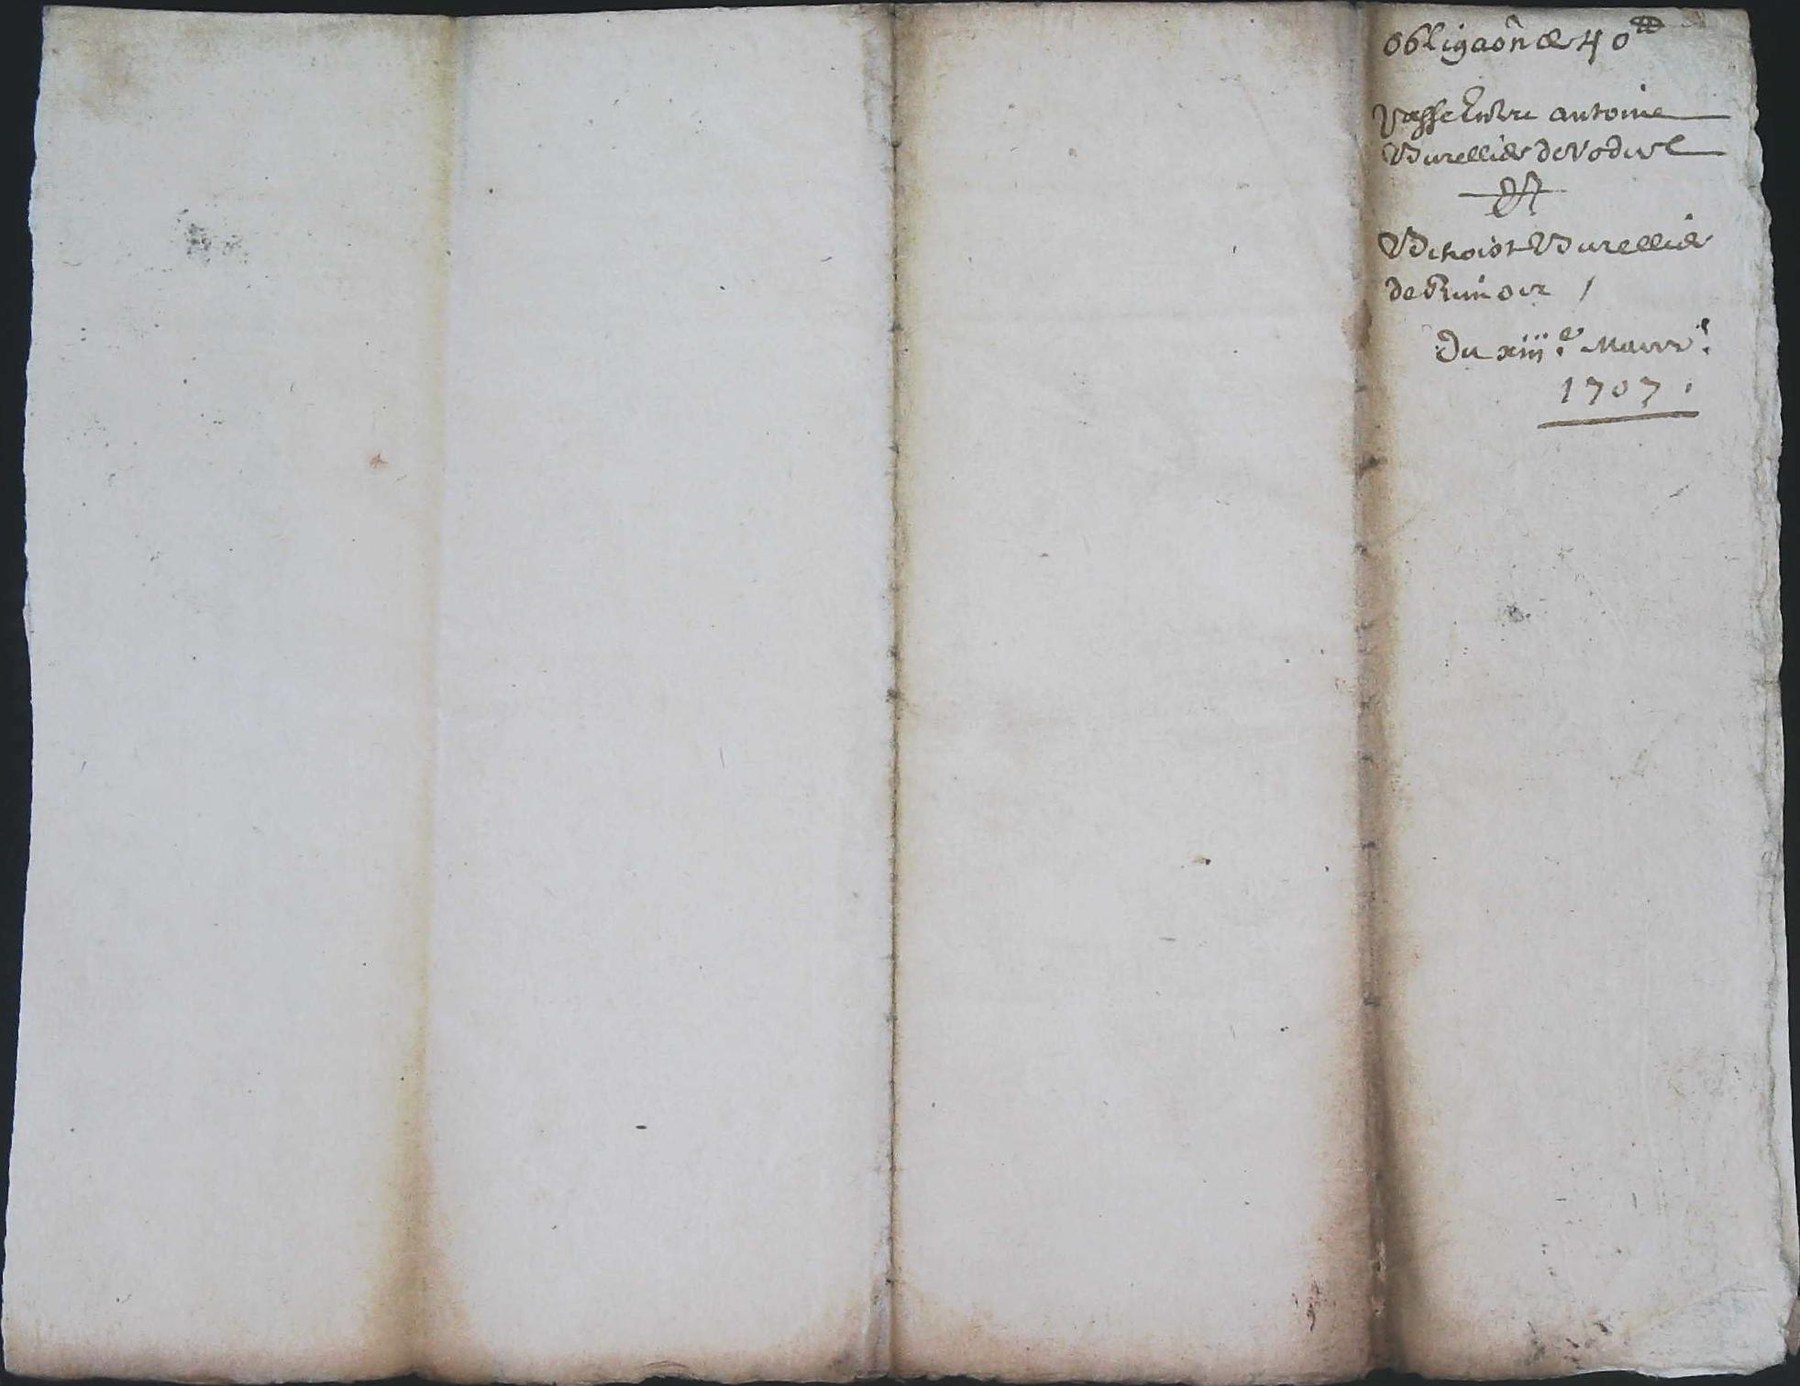 obligaôn de 40 ₶
passe Entre antoine
Burellier de Vodur
Et
Benoist Burellier
de
Du xiii.e Mars
1707.